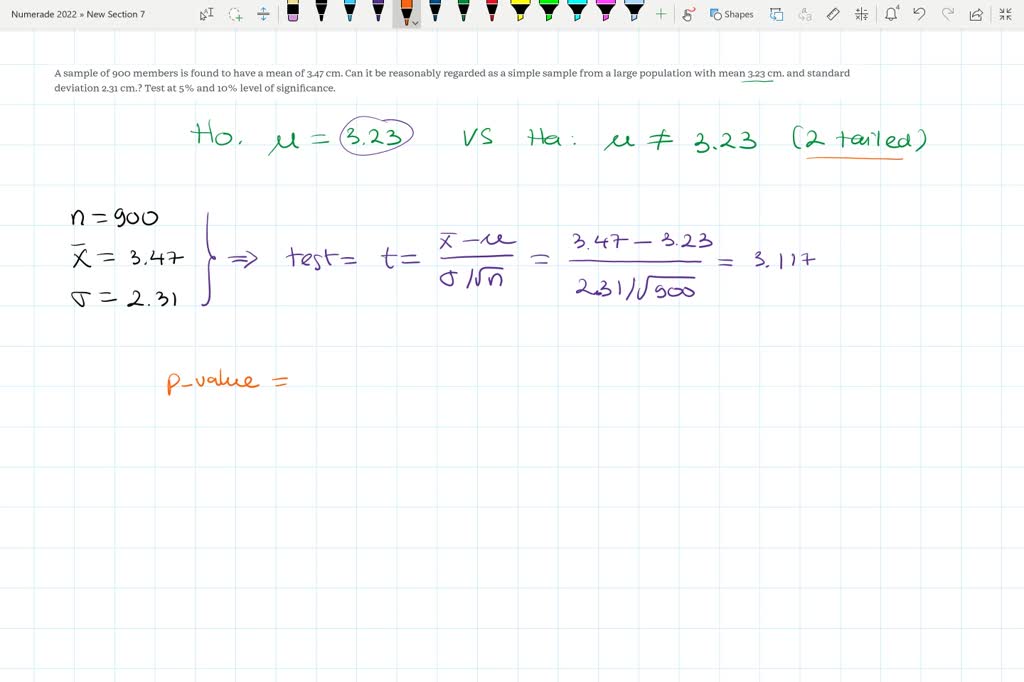 Numerade 2022 » New Section 7
Shapes
4
A sample of 900 members is found to have a mean of 3.47 cm. Can it be reasonably regarded as a simple sample from a large population with mean 3.23 cm. and standard
deviation 2.31 cm.? Test at 5% and 10% level of significance.
Ho. μ = 3.23 VS Ha: μ ≠ 3.23 (2 tailed)
n = 900
x̄ = 3.47
σ = 2.31
⇒ test = t = x̄ - μ / σ/√n = 3.47 - 3.23 / 2.31/√900 = 3.117
p-value =